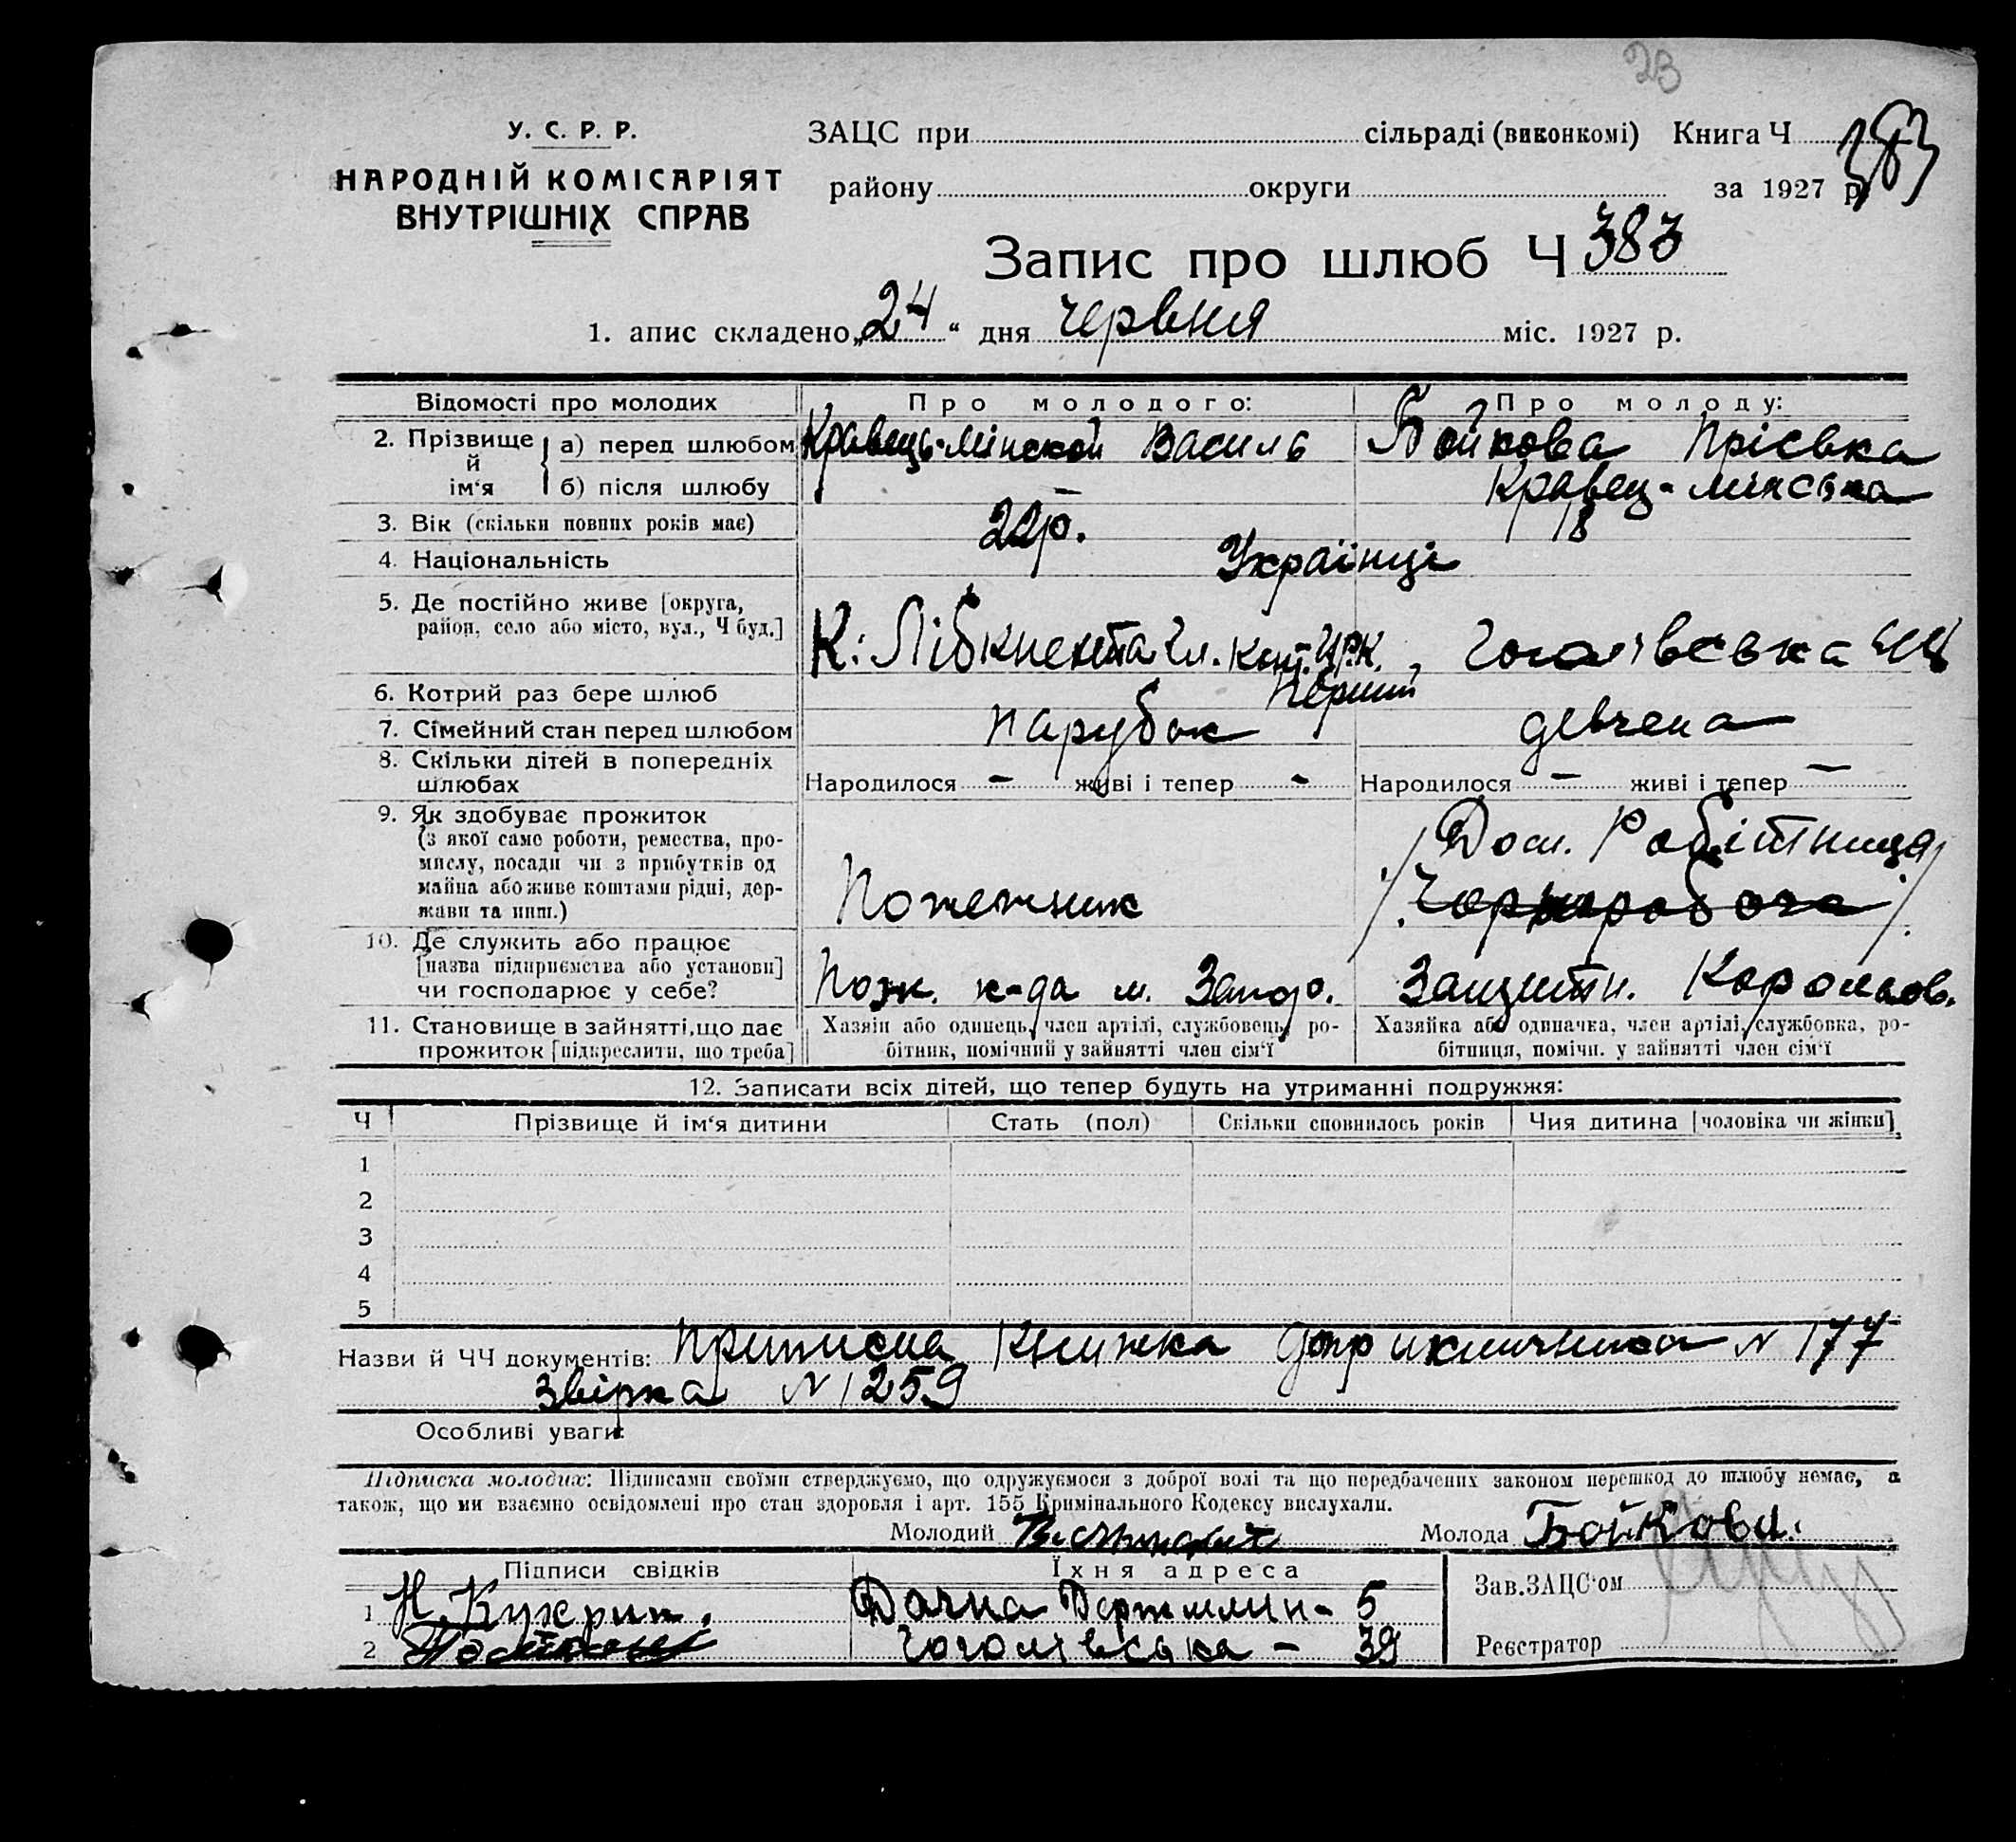 23
У. С. Р. Р.
НАРОДНІЙ КОМІСАРІЯТ
ВНУТРІШНІХ СПРАВ
ЗАЦС при сільраді (виконкомі) Книга Ч 383
району округи за 1927 р.
Запис про шлюб Ч 383
1. апис складено „24“ дня червня міс. 1927 р.
Відомості про молодих Про молодого: Про молоду:
2. Прізвище й ім‘я а) перед шлюбом Кравець-Мінской Василь Бойкова Пріська
б) після шлюбу — Кравец-Мінська
3. Вік (скільки повних років має) 22р. 18
4. Національність Українці
5. Де постійно живе [округа,
район, село або місто, вул., Ч буд.] К: Лібкнехта Гоголівська
6. Котрий раз бере шлюб перший
7. Сімейний стан перед шлюбом парубок девчена
8. Скільки дітей в попередніх
шлюбах Народилося — живі і тепер — Народилося — живі і тепер —
9. Як здобуває прожиток
(з якої саме роботи, ремества, про-
мислу, посади чи з прибутків од
майна або живе коштами рідні, дер-
жави та инш.) Пожежник Дом. Робітниця
Чорноробоча
10. Де служить або працює
[назва підприємства або установи]
чи господарює у себе? Пож. к-да м. Запор.
11. Становище в зайнятті, що дає
прожиток [підкреслити, що треба]
Хазяін або одинець, член артілі, службовець, ро-
бітник, помічний у зайнятті член сім‘ї
Хазяйка або одиначка, член артілі, службовка, ро-
бітниця, помічн. у зайнятті член сім‘ї
12. Записати всіх дітей, що тепер будуть на утриманні подружжя:
Ч Прізвище й ім‘я дитини Стать (пол) Скільки сповнилось років Чия дитина [чоловіка чи жінки]
1
2
3
4
5
Назви й ЧЧ документів: Приписна Книжка N 177
Звірка N 1259
Особливі уваги:
Підписка молодих: Підписами своїми стверджуємо, що одружуємося з доброї волі та що передбачених законом перешкод до шлюбу немає, а
також, що ми взаємно освідомлені про стан здоровля і арт. 155 Кримінального Кодексу вислухали.
Молодий Молода Бойкова.
Підписи свідків Їхня адреса
1 Н. Дачна 5
2 Гоголівська - 39
Зав. ЗАЦС‘ом
Реєстратор